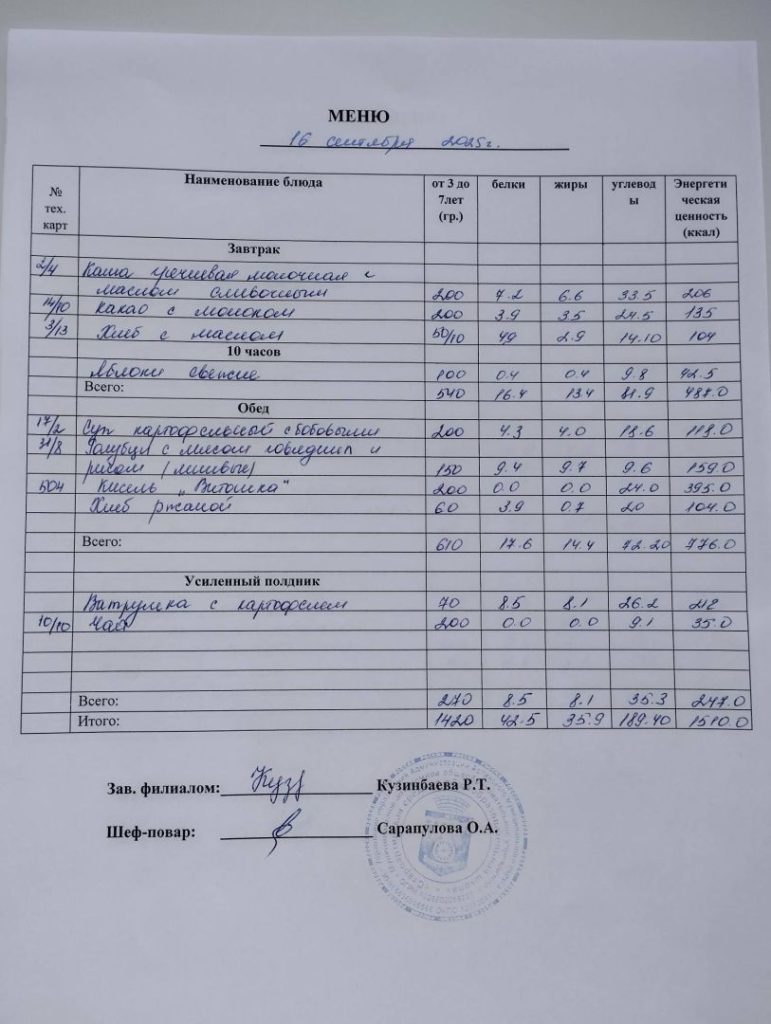 МЕНЮ
16 сентября 2025г.
№ тех. карт Наименование блюда от 3 до 7лет (гр.) белки жиры углеводы Энергетическая ценность (ккал)
Завтрак
2/4 Каша гречневая молочная с
маслом сливочным 200 7.2 6.6 33.5 206
14/10 Какао с молоком 200 3.9 3.5 24.5 135
3/13 Хлеб с маслом 50/10 49 2.9 14.10 104
10 часов
Яблоки свежие 100 0.4 0.4 9.8 42.5
Всего: 540 16.4 13.4 81.9 487.0
Обед
17/2 Суп картофельный с бобовыми 200 4.3 4.0 18.6 118.0
31/8 Голубцы с мясом говядины и
рисом (ленивые) 150 9.4 9.7 9.6 159.0
504 Кисель „Витошка" 200 0.0 0.0 24.0 395.0
Хлеб ржаной 60 3.9 0.7 20 104.0
Всего: 610 17.6 14.4 72.20 776.0
Усиленный полдник
Ватрушка с картофелем 70 8.5 8.1 26.2 212
10/10 Чай 200 0.0 0.0 9.1 35.0
Всего: 270 8.5 8.1 35.3 247.0
Итого: 1420 42.5 35.9 189.40 1510.0
Зав. филиалом: Куз Кузинбаева Р.Т.
Шеф-повар: Сарапулова О.А.